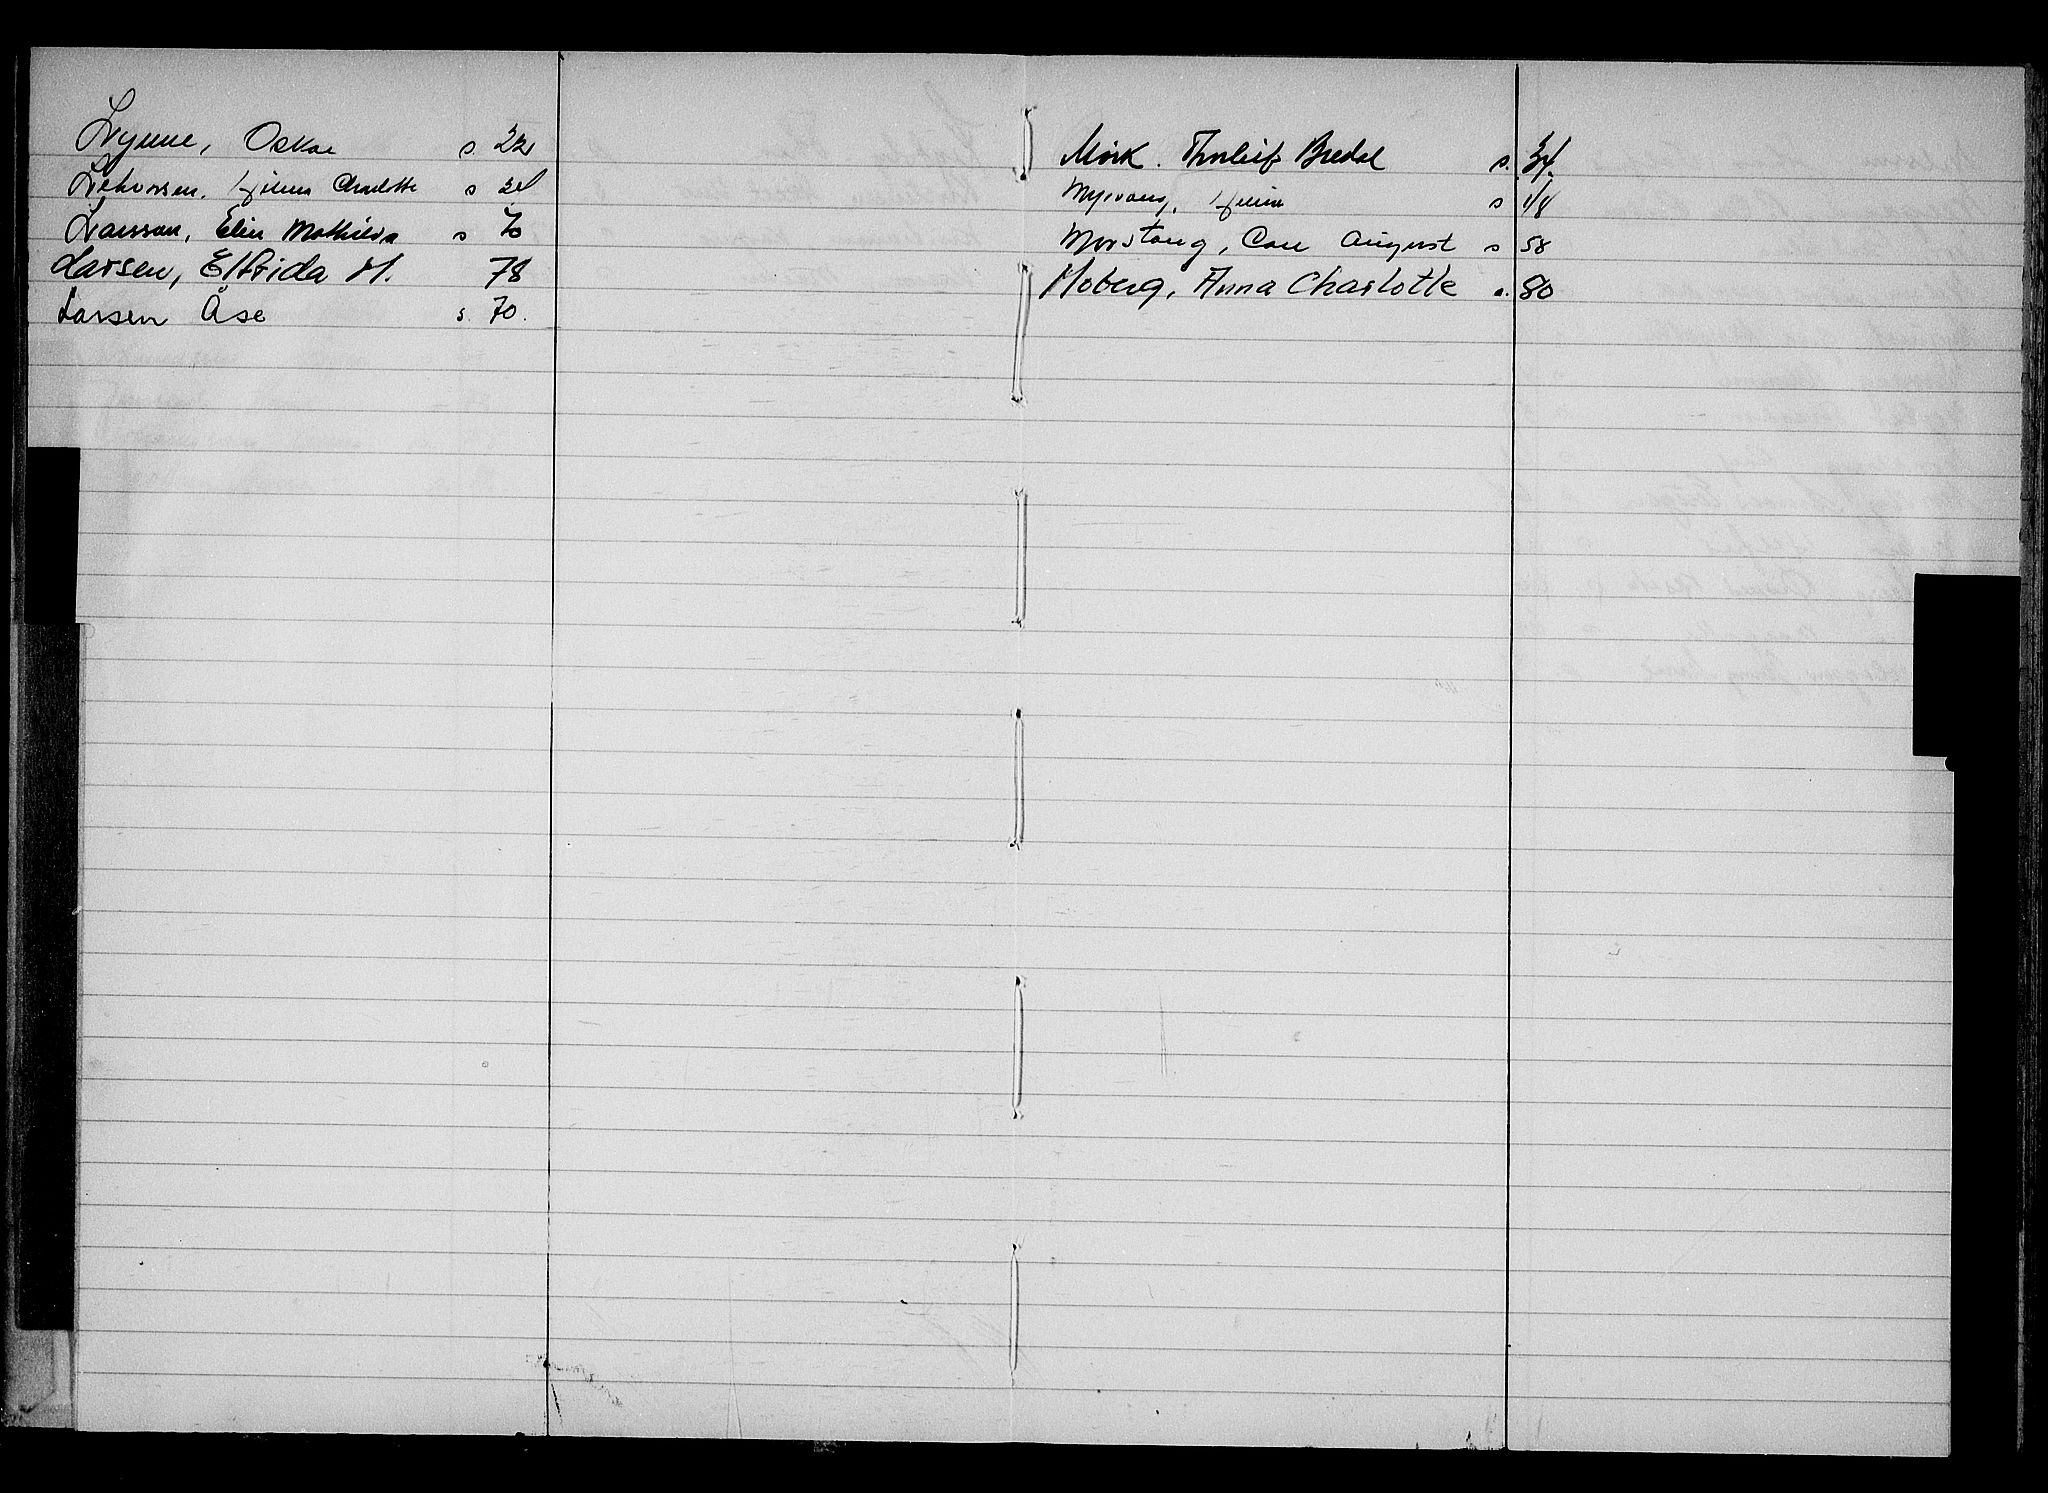 Oskar s. 22
Charlotte s 24
Larsson, Elin Mathilda s 70
Larsen, Elfrida M. 78
Larsen Åse s. 70.
Mörk. Thorleif Bredal s. 34.
Myrvang, s 48
Morstang, Carl August s 58
Moberg, Anna Charlotte s. 80